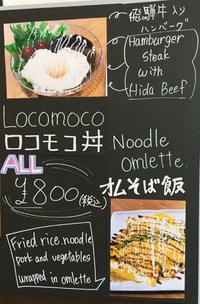 飛騨牛入り
ハンバーグ
Hamburger
Steak
with
Hida Beef
Locomoco
ロコモコ丼
ALL
¥800(税込)
Noodle
Omlette.
オムそば飯
Fried rice.noodle
pork and vegetables
wrapped in omlette